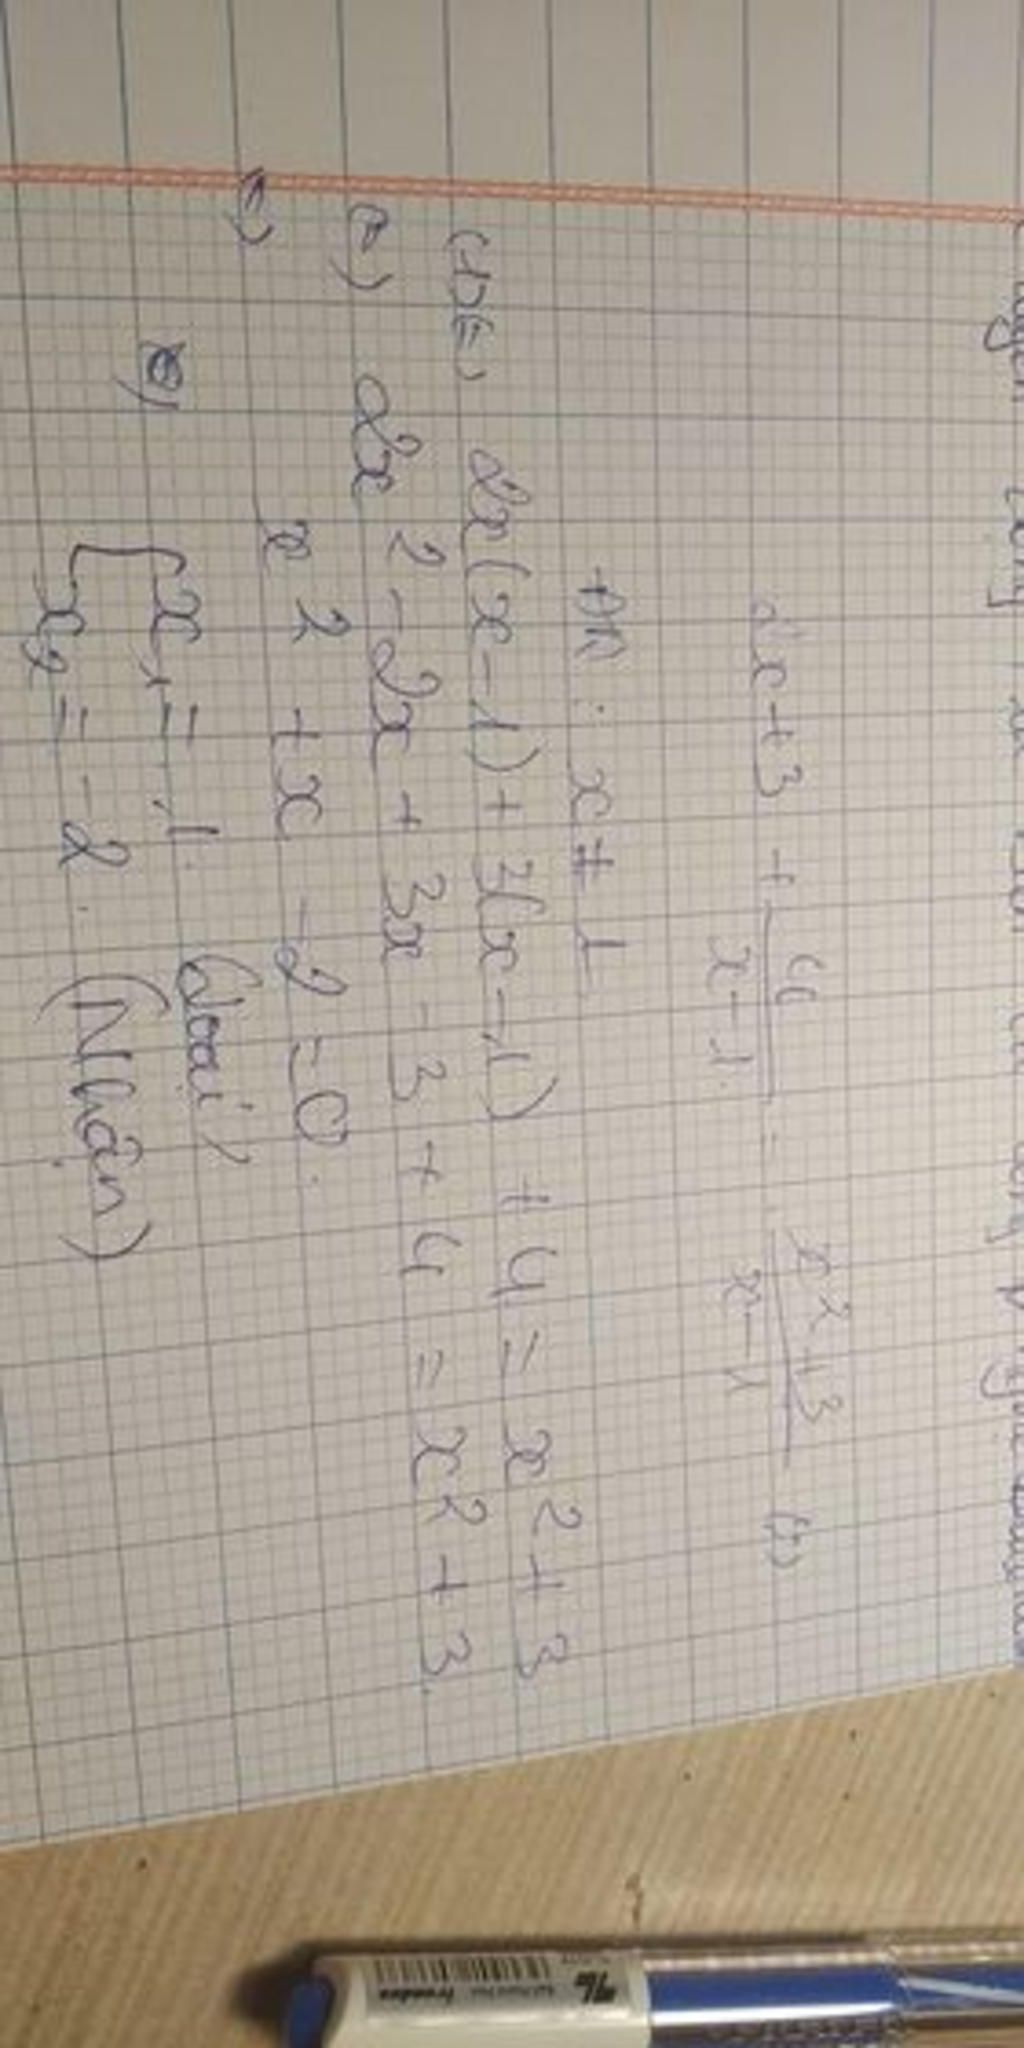 2x + 3 + 4/(x - 1) = (x² + 3)/(x - 1) (1)
ĐK : x ≠ 1
(1) ⇔ 2x(x - 1) + 3(x - 1) + 4 = x² + 3
⇔ 2x² - 2x + 3x - 3 + 4 = x² + 3
⇔ x² + x - 2 = 0.
⇔ [ x₁ = 1. (loại)
x₂ = -2. (Nhận)